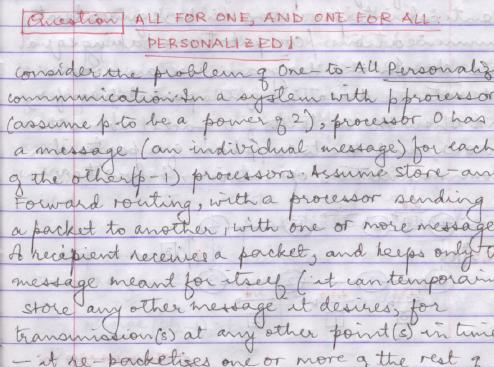 Question ALL FOR ONE, AND ONE FOR ALL:
PERSONALIZED!
Consider the problem of One-to-All Personaliz
communication. In a system with p processor
(assume p to be a power of 2), processor 0 has
a message (an individual message) for each
of the other (p-1) processors. Assume Store-an
Forward routing, with a processor sending
a packet to another, with one or more message
A recipient receives a packet, and keeps only t
message meant for itself (it can temporari
store any other message it desires, for
transmission(s) at any other point(s) in time
- it re-packetises one or more of the rest of